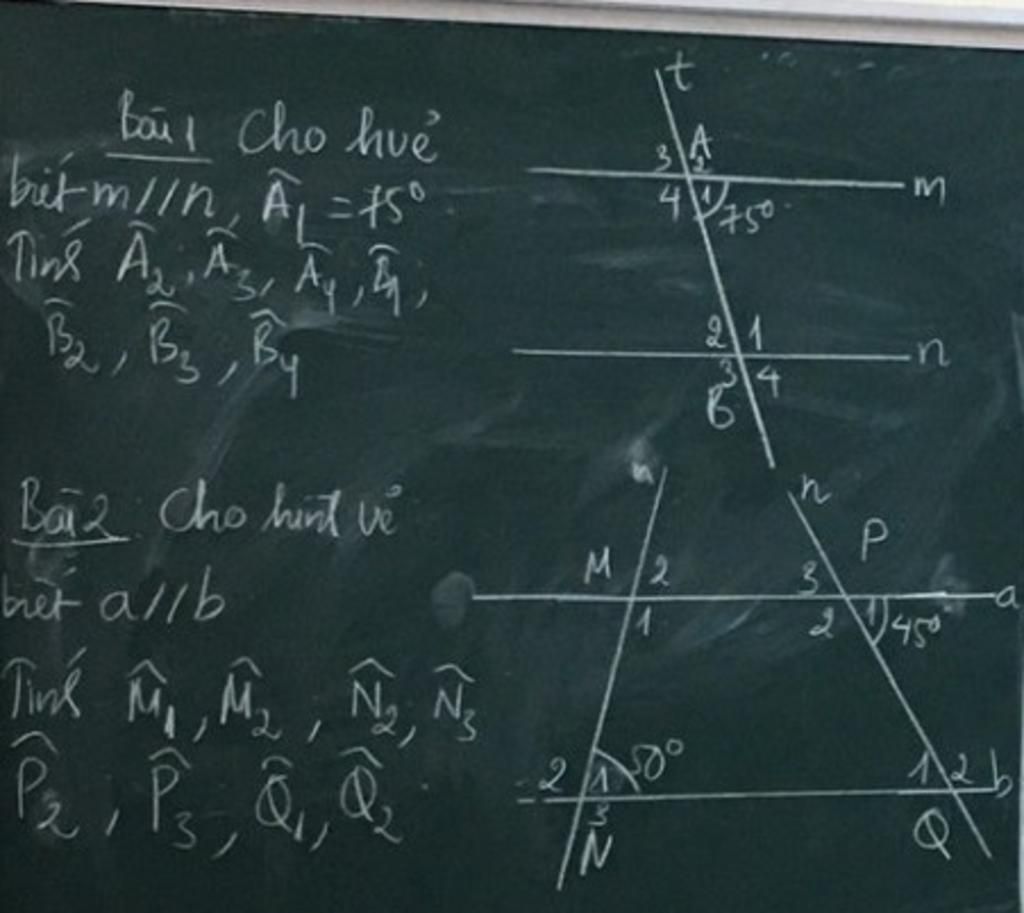 Bài 1 Cho hvẽ
biết m//n, Â₁ = 75°
Tính Â₂, Â₃, Â₄, B̂₁,
B̂₂, B̂₃, B̂₄
t
3 A 2
4 1 75°
m
2 1
n
3 4
B
Bài 2 Cho hình vẽ
biết a//b
Tính M̂₁, M̂₂, N̂₂, N̂₃
P̂₂, P̂₃, Q̂₁, Q̂₂
n
M 2
1
P
3
2 1 45°
a
2 1 50°
3
N
1 2 b
Q